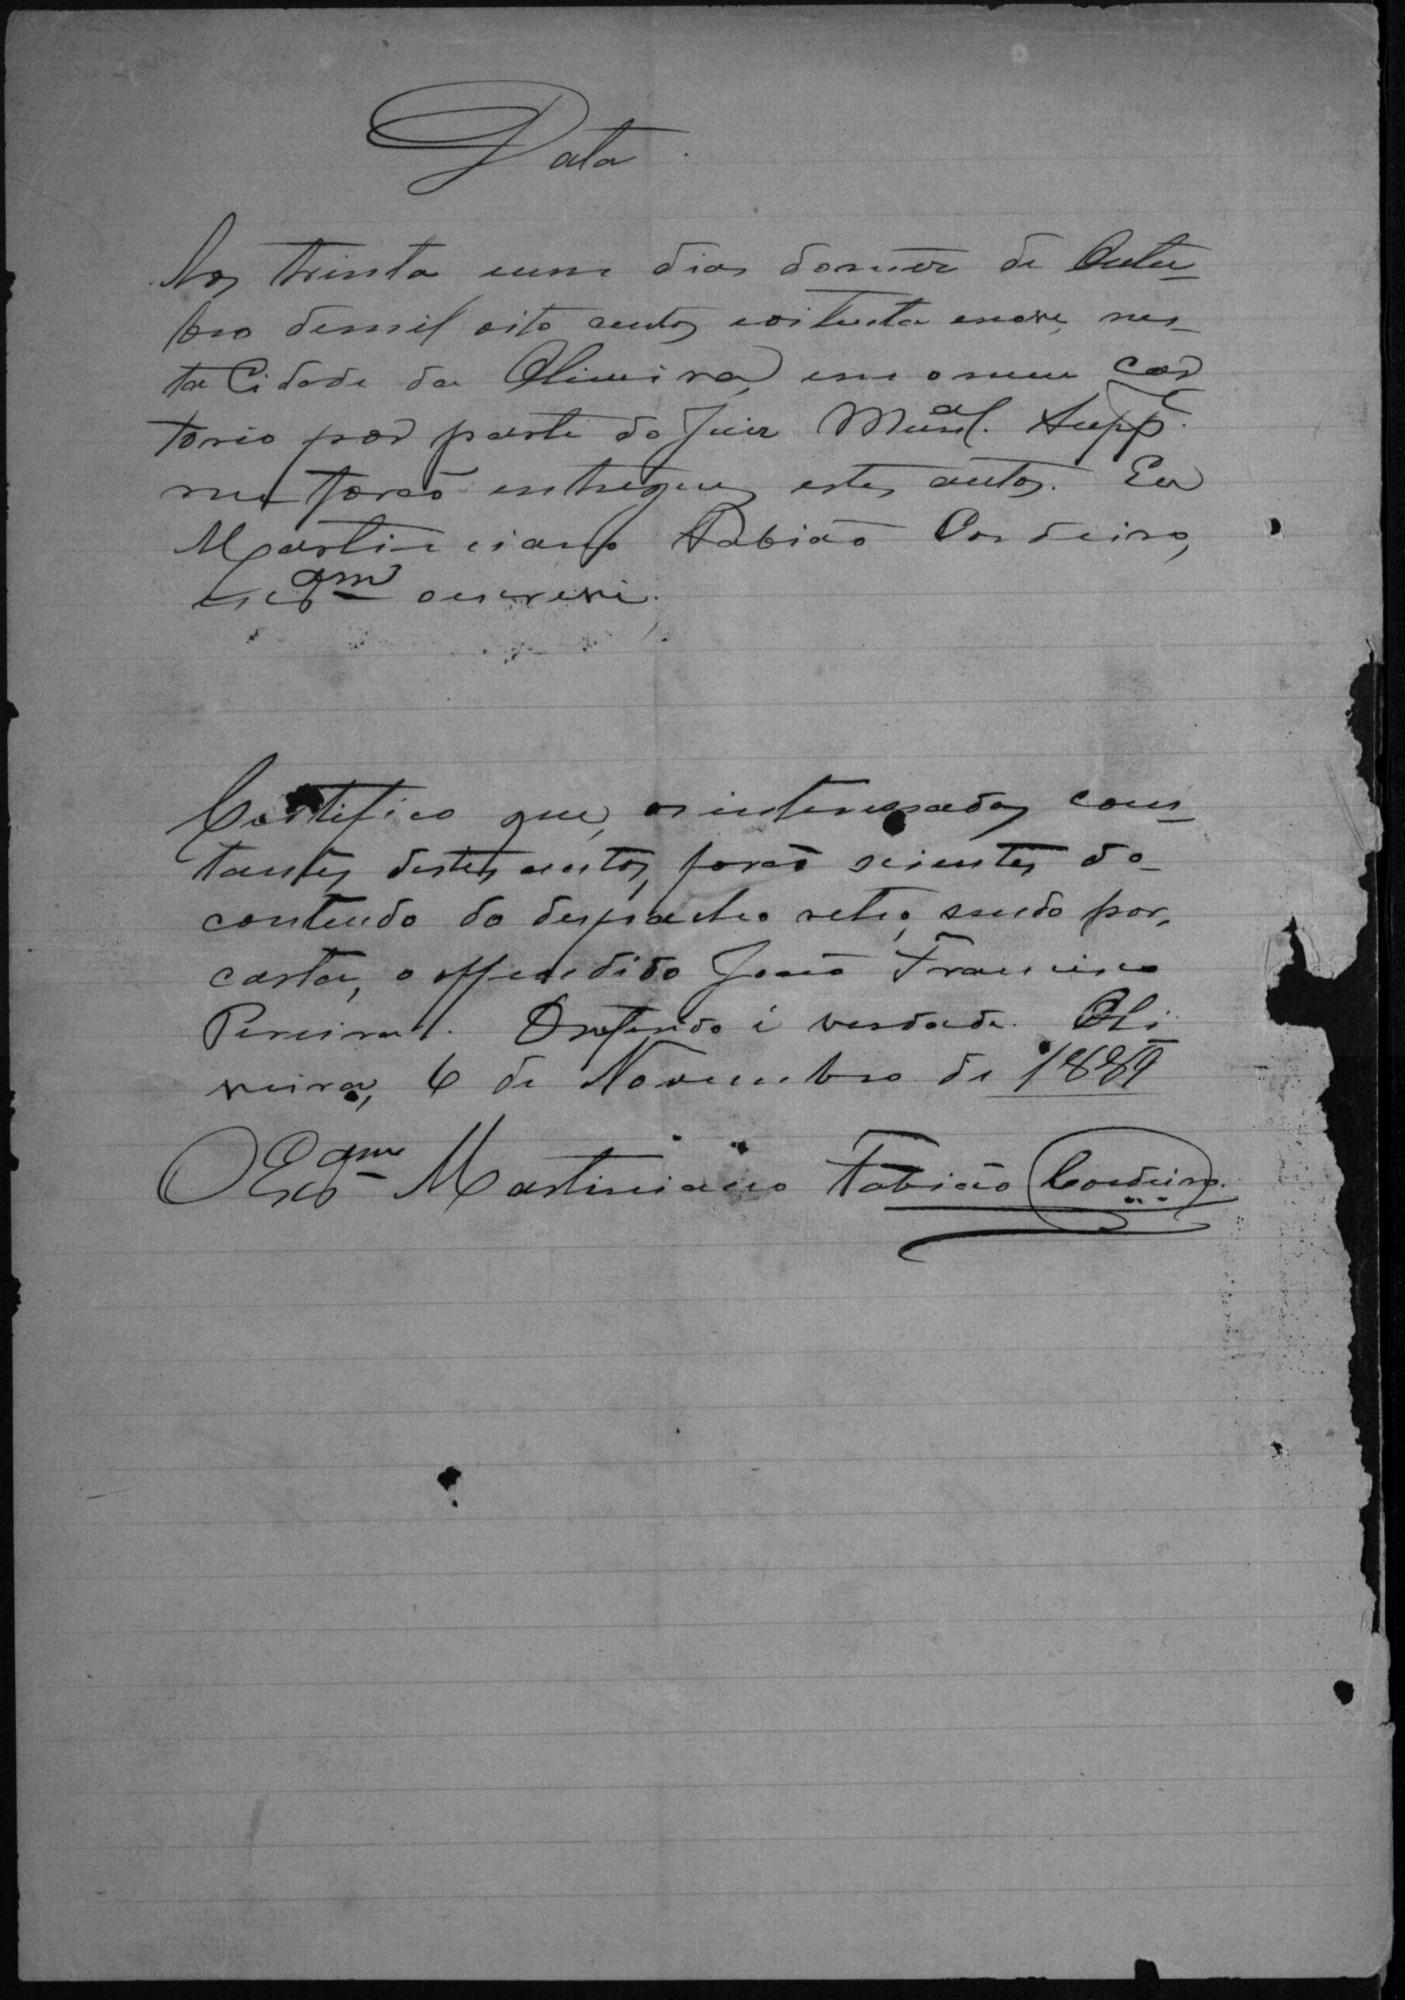 Data.
Aos trinta eum dias domez de Outu-
bro demil oito centos eoitenta enove, nes-
ta Cidade da Oliveira, em omeu car
torio por parte do Juiz Mu.al Supp.e
me forão entregues estes autos. Eu
Martiniano Fabião Cordeiro,
Escr.am oescrevi.
Certifico que, os interessados cons-
tantes destes autos, forão scientes do
conteudo do despacho retro, sendo por,
carta, o offendido João Francisco
Pereira. Oreferido é verdade. Oli
veira, 6 de Novembro de 1889
O Escr.am Martiniano Fabião Cordeiro.